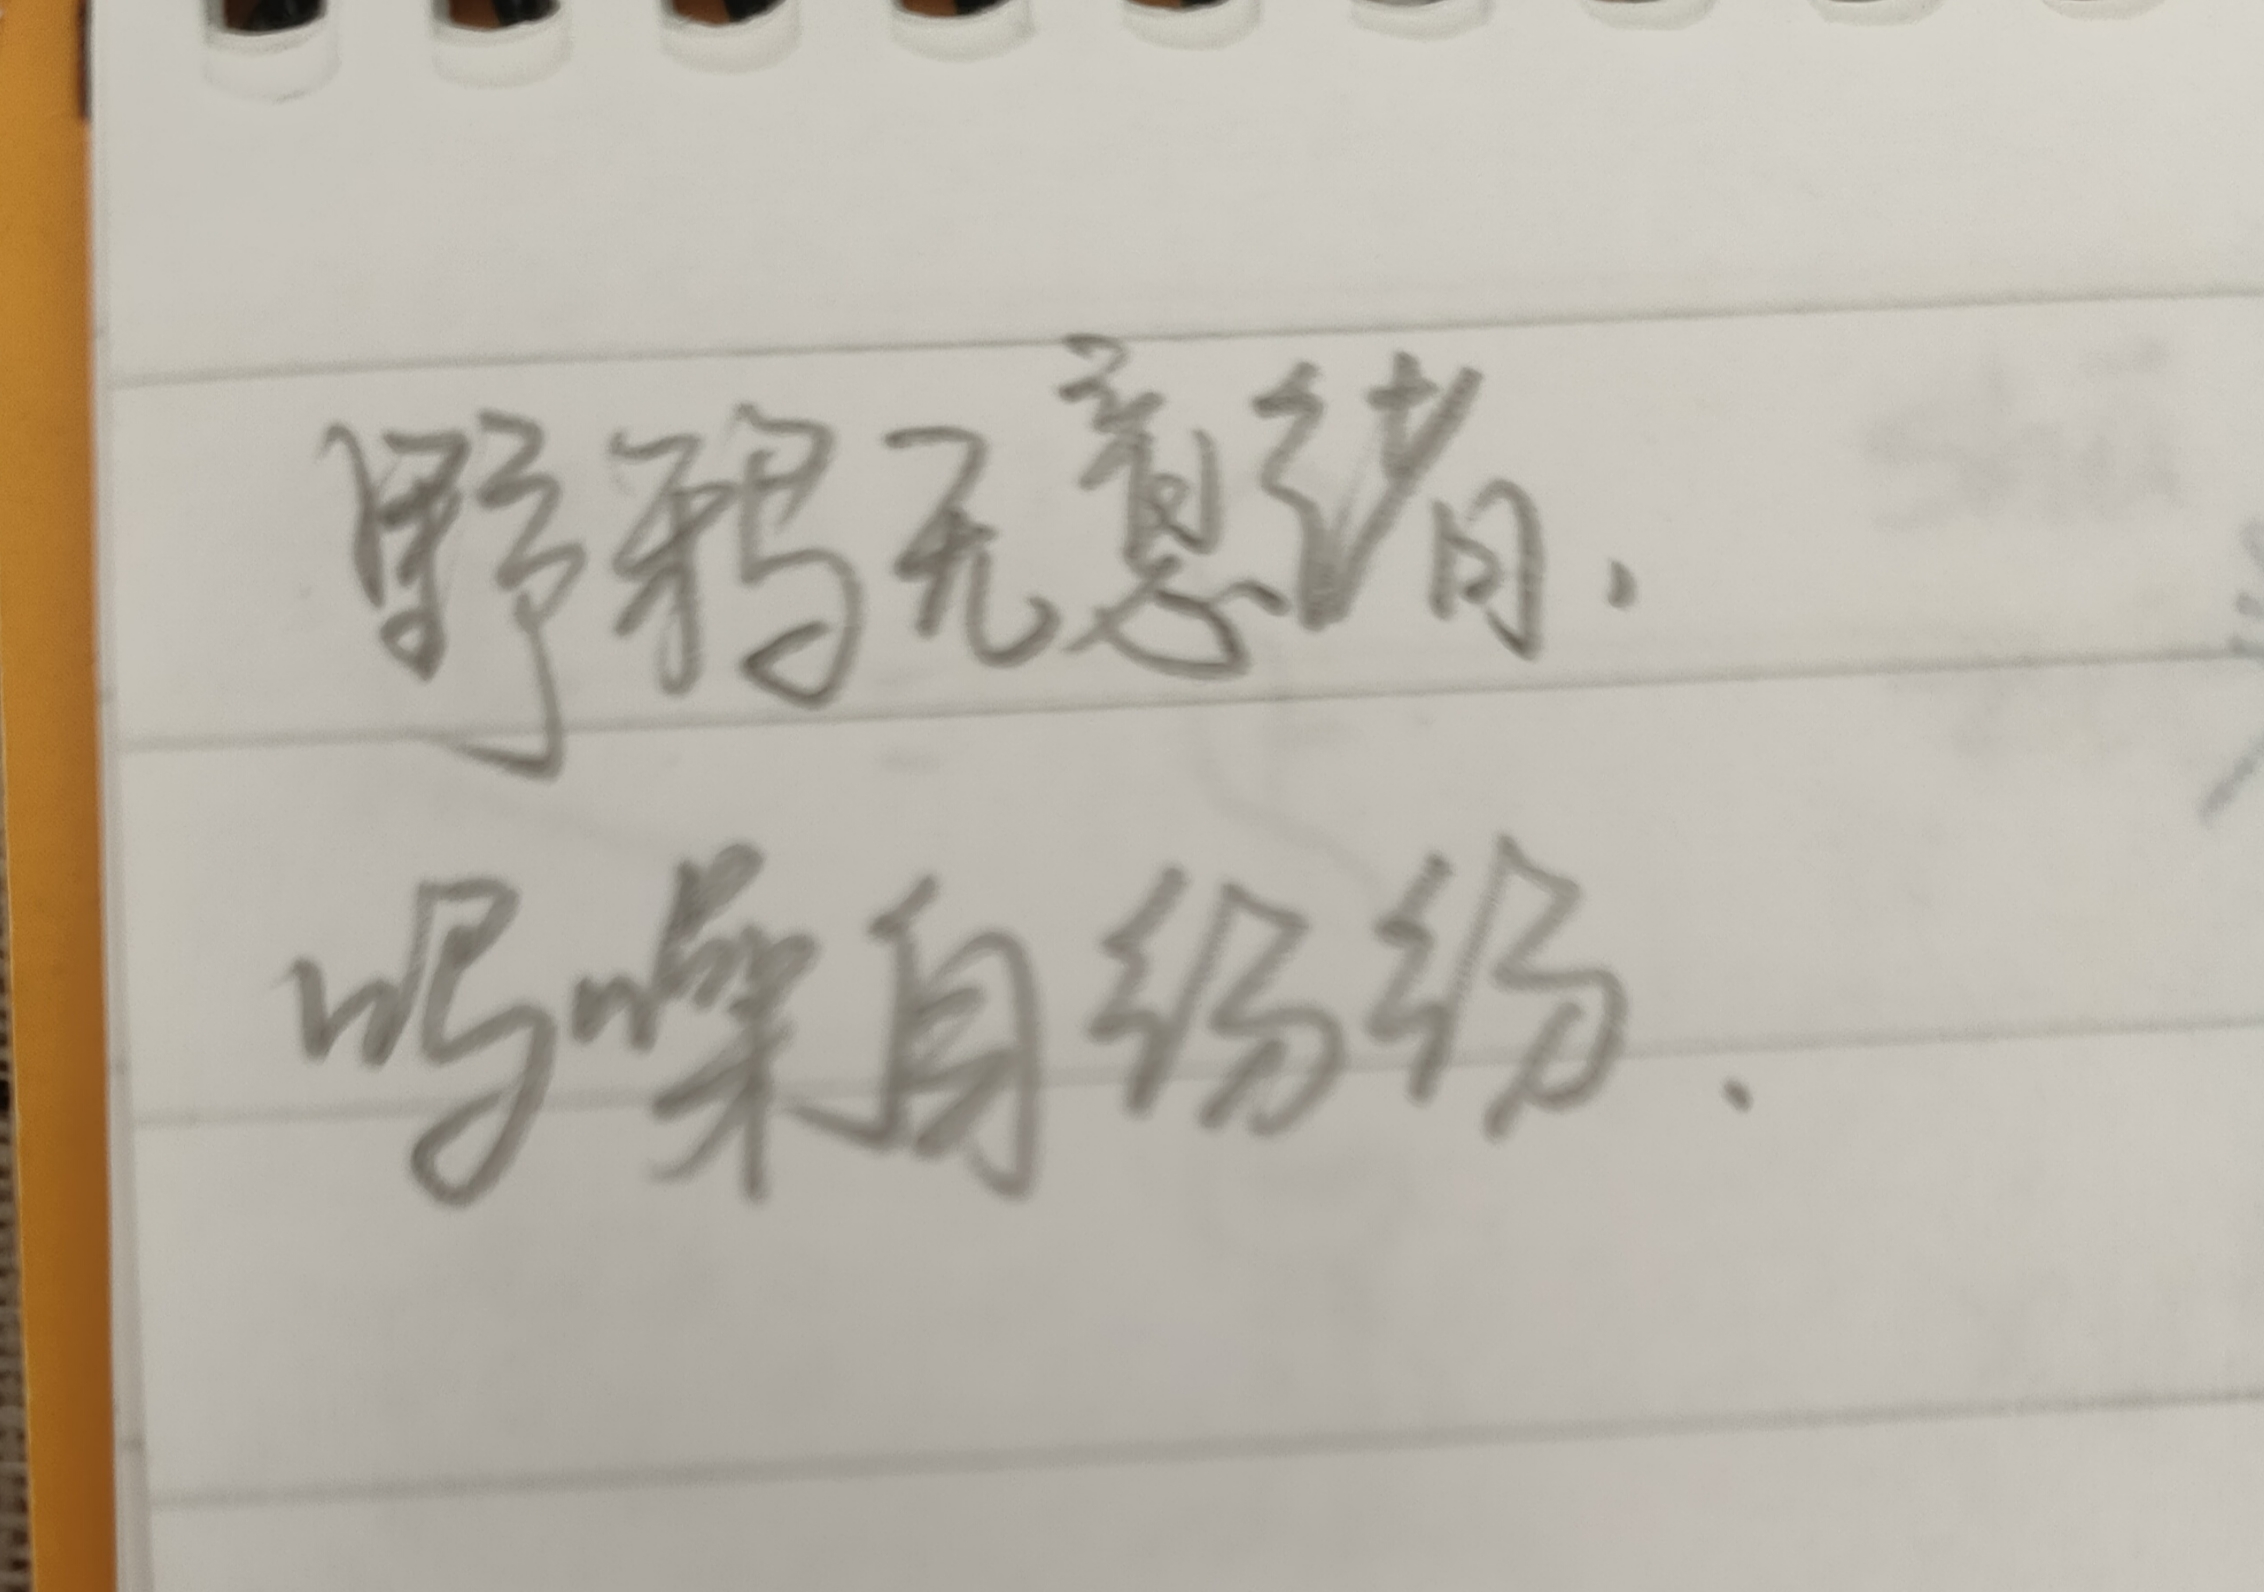 野鸦无意绪.
鸣噪自纷纷.